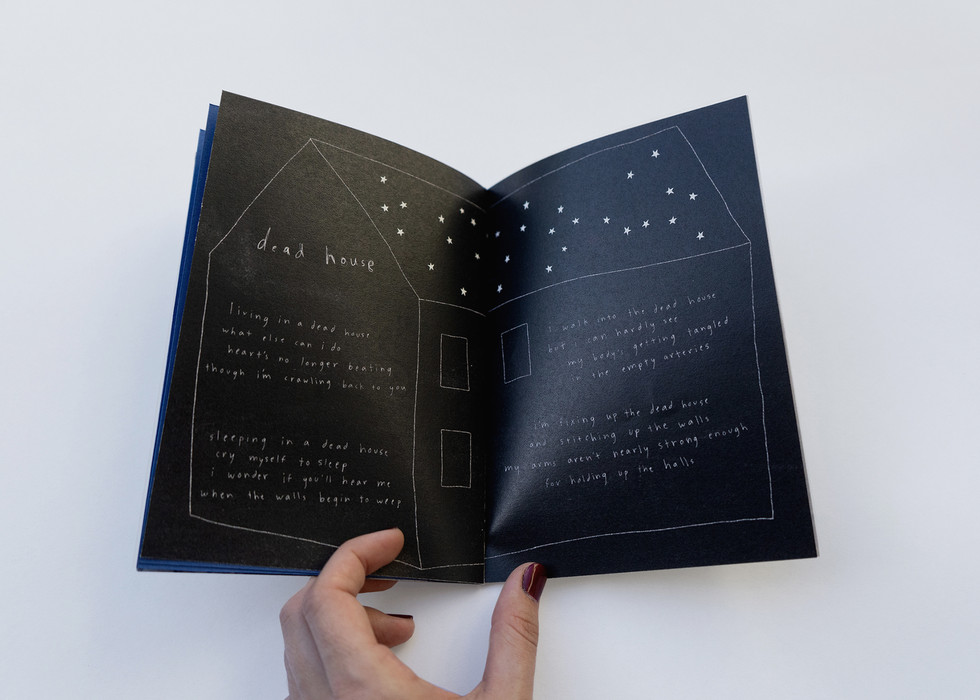 dead house
living in a dead house
what else can i do
heart's no longer beating
though i'm crawling back to you
sleeping in a dead house
cry myself to sleep
i wonder if you'll hear me
when the walls begin to weep
i walk into the dead house
but i can hardly see
my body's getting tangled
in the empty arteries
i'm fixing up the dead house
and stitching up the walls
my arms aren't nearly strong enough
for holding up the halls